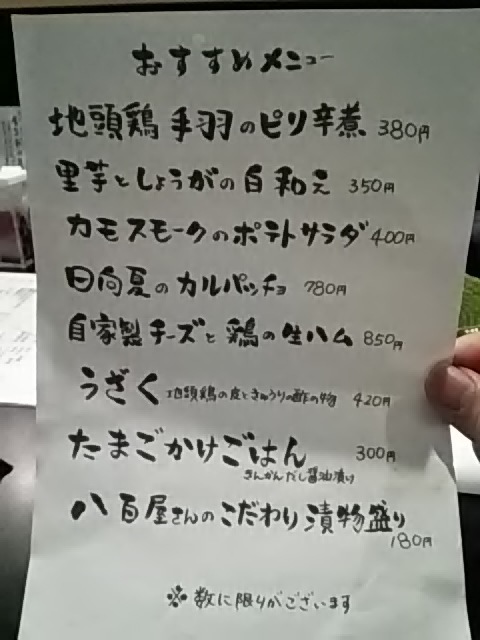 おすすめメニュー
地頭鶏手羽のピリ辛煮 380円
里芋としょうがの白和え 350円
カモスモークのポテトサラダ 400円
日向夏のカルパッチョ 780円
自家製チーズと鶏の生ハム 850円
うざく 地頭鶏の皮ときゅうりの酢の物 420円
たまごかけごはん 300円
きんかんだし醤油漬け
八百屋さんのこだわり漬物盛り
180円
※数に限りがございます